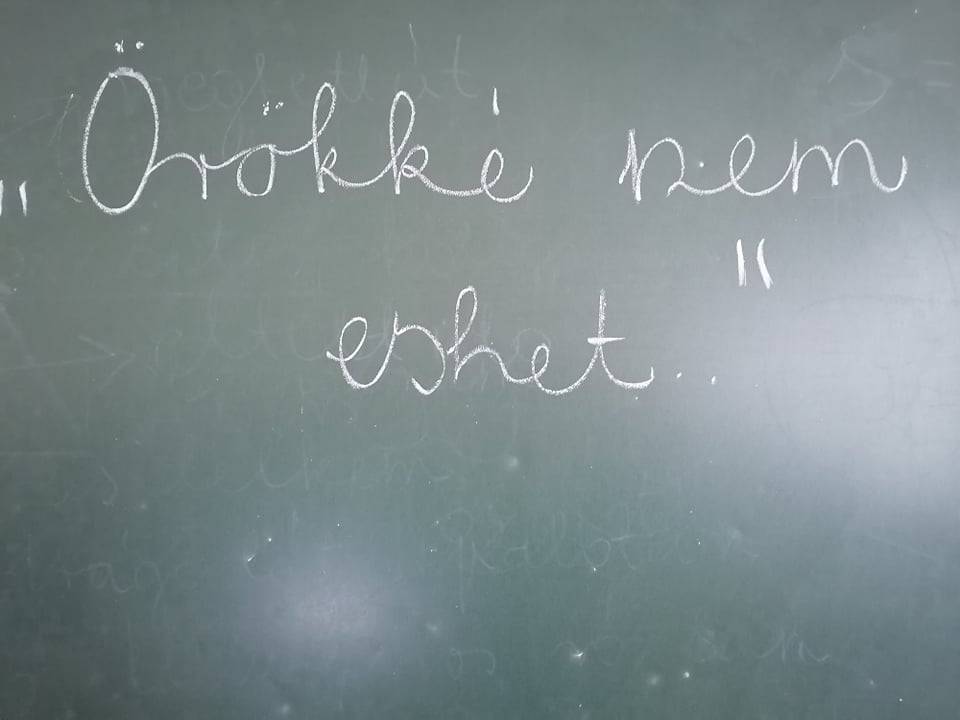 „Örökké nem
eshet..."